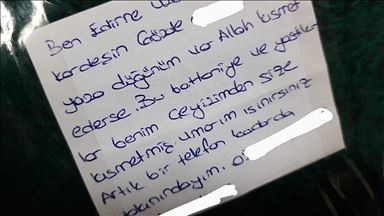 Ben Edirne
kardeşin Gözde
yaza düğünüm var Allah kısmet
ederse. Bu battaniye ve yastık
lar benim çeyizimden size
kısmetmiş. umarım ısınırsınız
Artık bir telefon kadarda
yakınındayım. 0